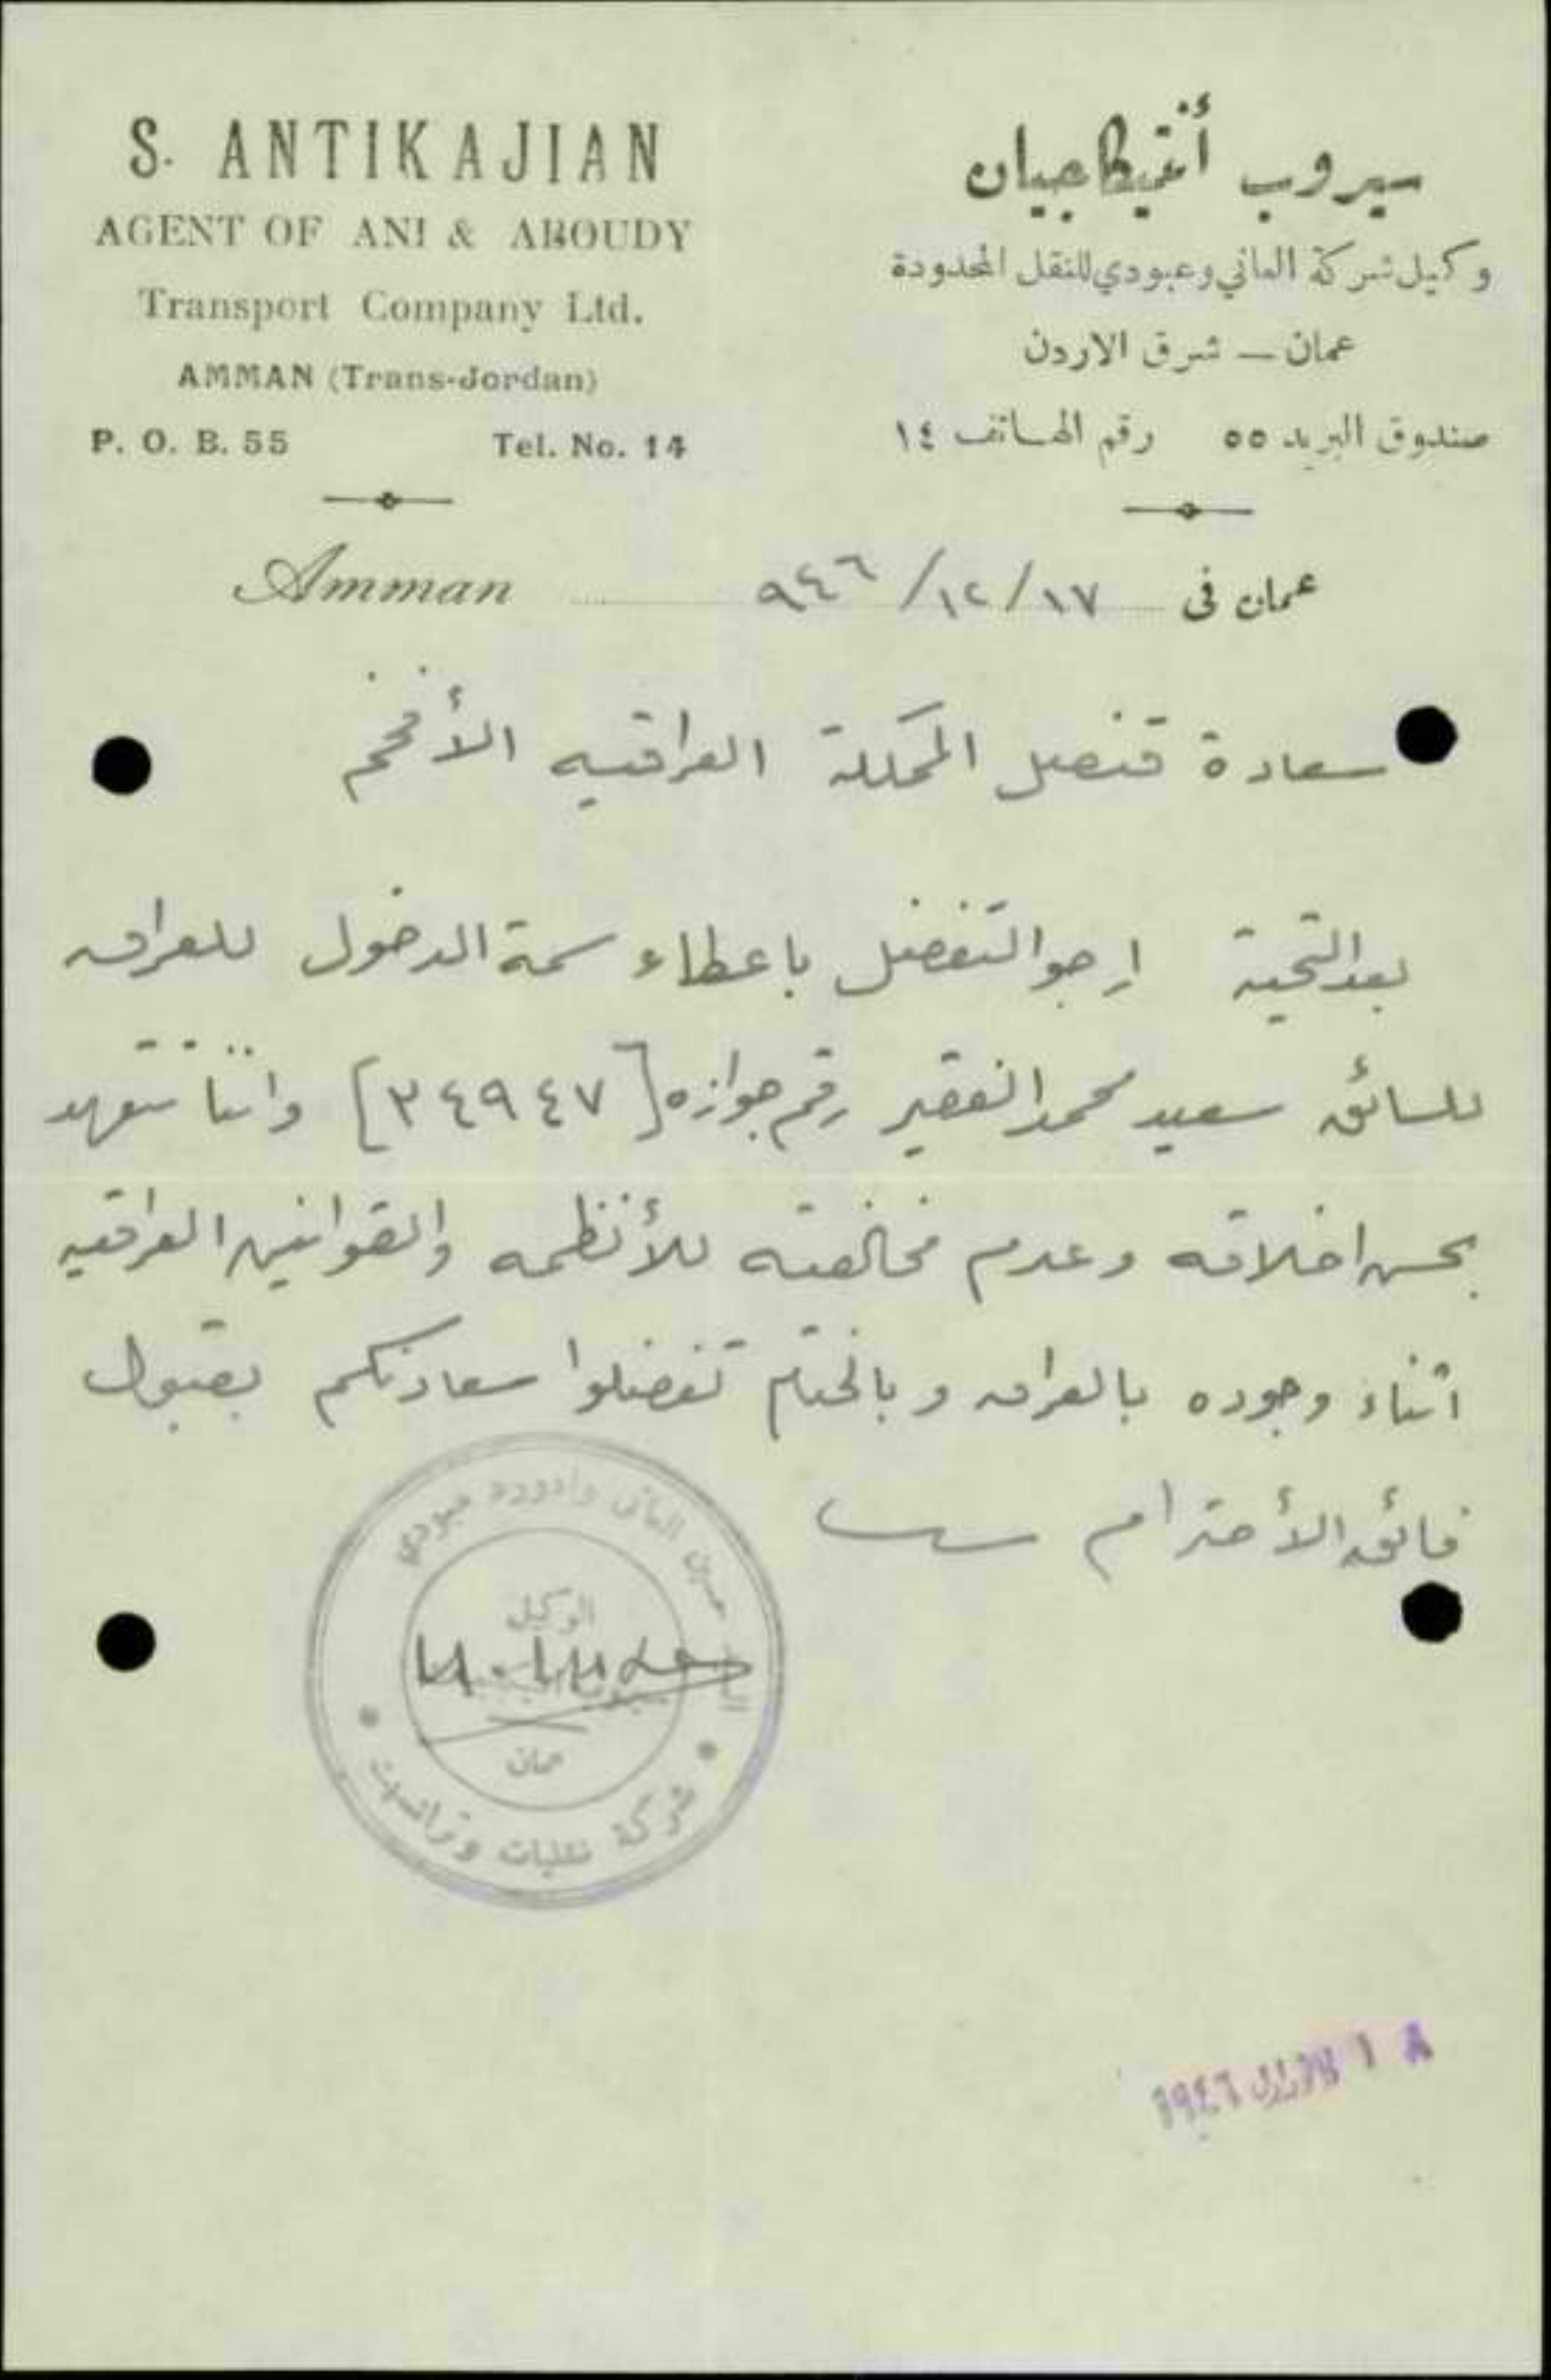 S. ANTIKAJIAN
AGENT OF ANI & ABOUDY
Transport Company Ltd.
AMMAN (Trans-Jordan)
P. O. B. 55 Tel. No. 14
سيروب أنتيكاجيان
وكيل شركة العاني وعبودي للنقل المحدودة
عمان — شرق الاردن
صندوق البريد ٥٥ رقم الهاتف ١٤
Amman
عمان في ١٧/١٢/٩٤٦
سعادة قنصل المملكة العراقيه الأفخم
بعد التحية ارجو التفضل باعطاء سمة الدخول للعراق
للسائق سعيد محمد الفقير رقم جوازه [٣٤٩٤٧] واننا نتعهد
بحسن اخلاقه وعدم مخالفته للأنظمه والقوانين العراقيه
اثناء وجوده بالعراق وبالختام تفضلوا سعادتكم بقبول
فائق الأحترام
حسين العاني وادورد عبودي
الوكيل
عمان
شركة نقليات وترانسيت
١٨ ك. اول ١٩٤٦